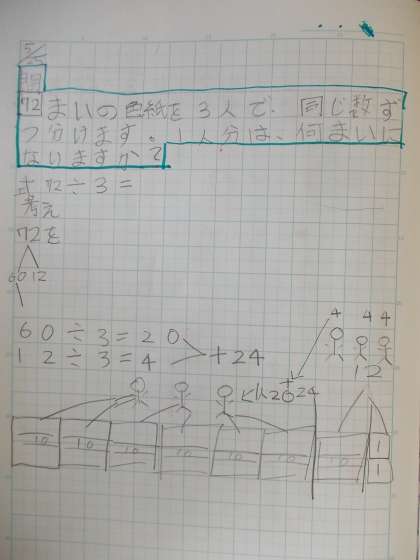 5/25
問
72まいの色紙を3人で、同じ数ず
つ分けます。1人分は、何まいに
なりますか?
式72÷3=
考え
72を
60 12
60÷3=20
12÷3=4
+24
4 4 4
12
20+4 24
10 10 10 10 10 10 10 1
1